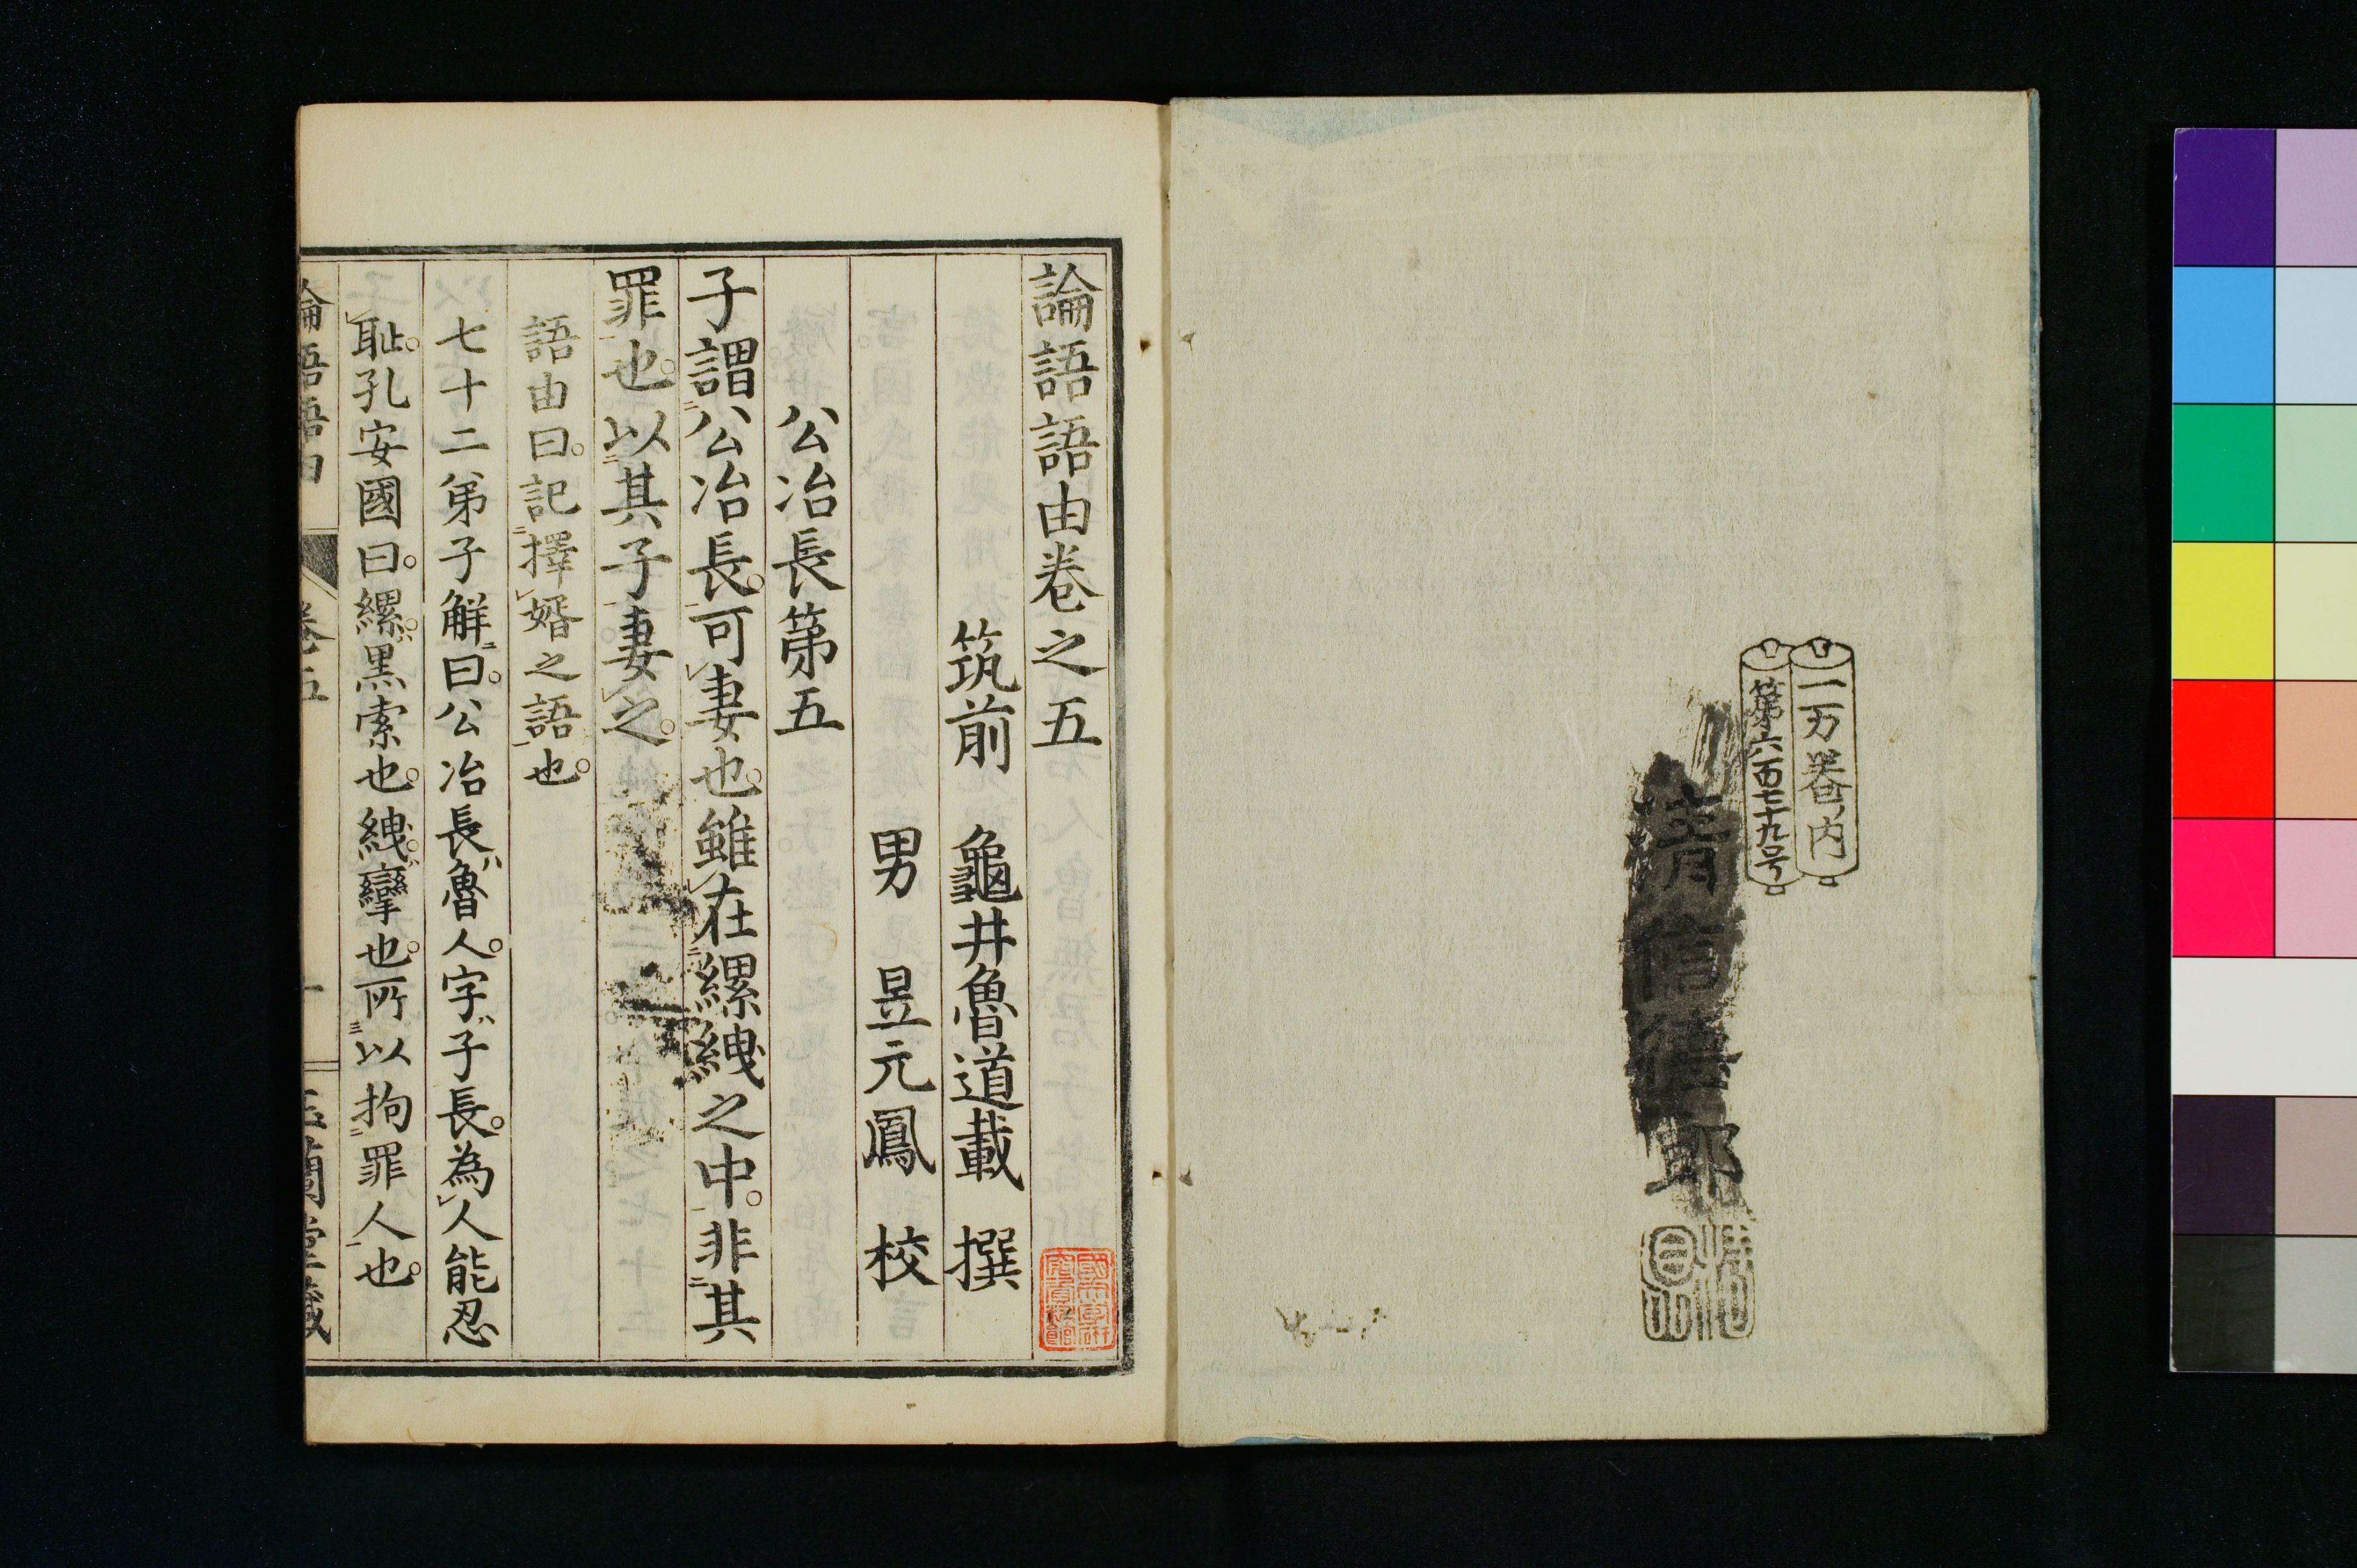 二万卷内
第六百七十九号
論語語由卷之五
筑前　龜井魯道載　撰
男　昱元鳳　校
公冶長第五
子謂公冶長。可妻也。雖在縲絏之中。非其
罪也。以其子妻之。
語由曰。記擇婿之語也。
七十二弟子解曰。公冶長魯人。字子長。為人能忍
耻。孔安國曰。縲。黑索也。絏。攣也。所以拘罪人也。
論語語由　卷五　一　玉蘭堂藏